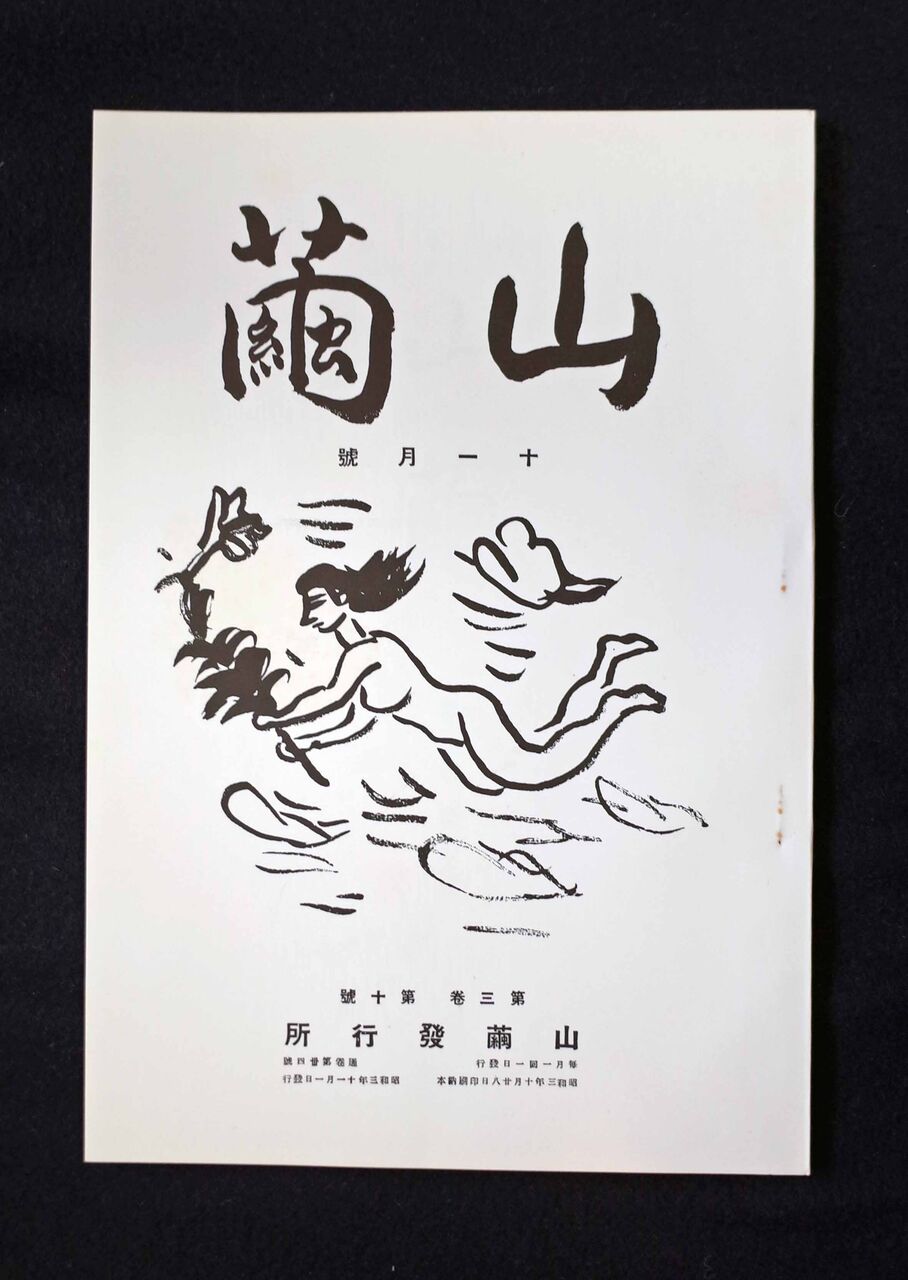 山繭
十一月號
第三卷 第十號
山繭發行所
每月一回一日發行 通卷第卅四號
昭和三年十月廿八日印刷納本 昭和三年十一月一日發行